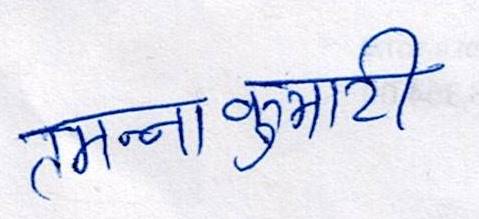 तमन्ना कुमारी